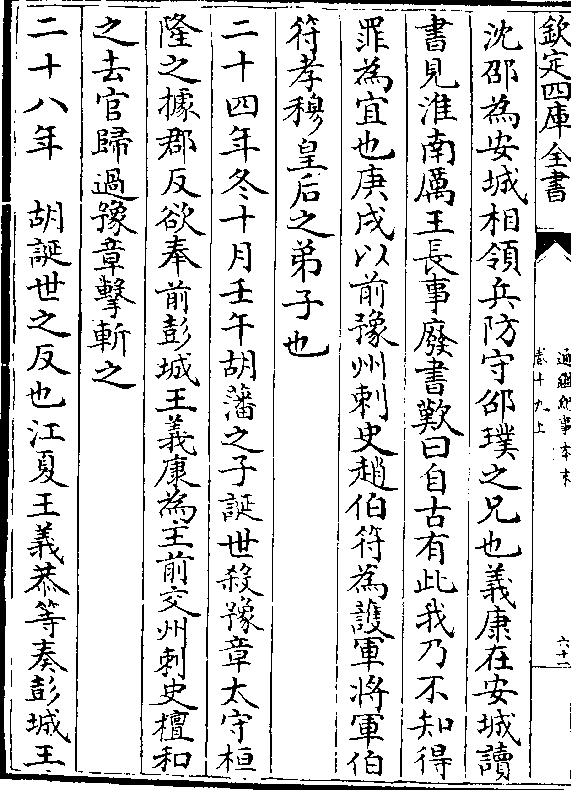 欽定四庫全書
通鑑紀事本末
卷十九上
六十二
沈邵為安城相領兵防守邵璞之兄也義康在安城讀
書見淮南厲王長事廢書歎曰自古有此我乃不知得
罪為宜也庚戌以前豫州刺史趙伯符為護軍將軍伯
符孝穆皇后之弟子也
二十四年冬十月壬午胡藩之子誕世殺豫章太守桓
隆之據郡反欲奉前彭城王義康為主前交州刺史檀和
之去官歸過豫章擊斬之
二十八年　胡誕世之反也江夏王義恭等奏彭城王